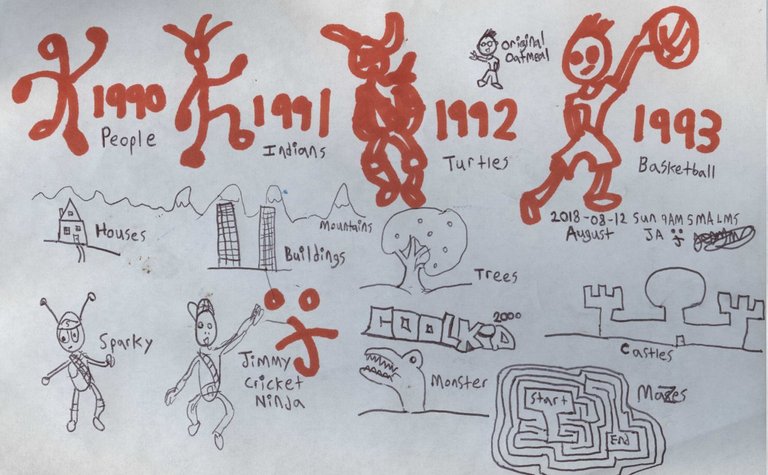 original
Oatmeal
1990
People
1991
Indians
1992
Turtles
1993
Basketball
2018-08-12 Sun 9AM SMALMS
August JA
Houses
Buildings
Mountains
Trees
Sparky
Jimmy
Cricket
Ninja
COOLKID
2000
Monster
Castles
Mazes
Start
End